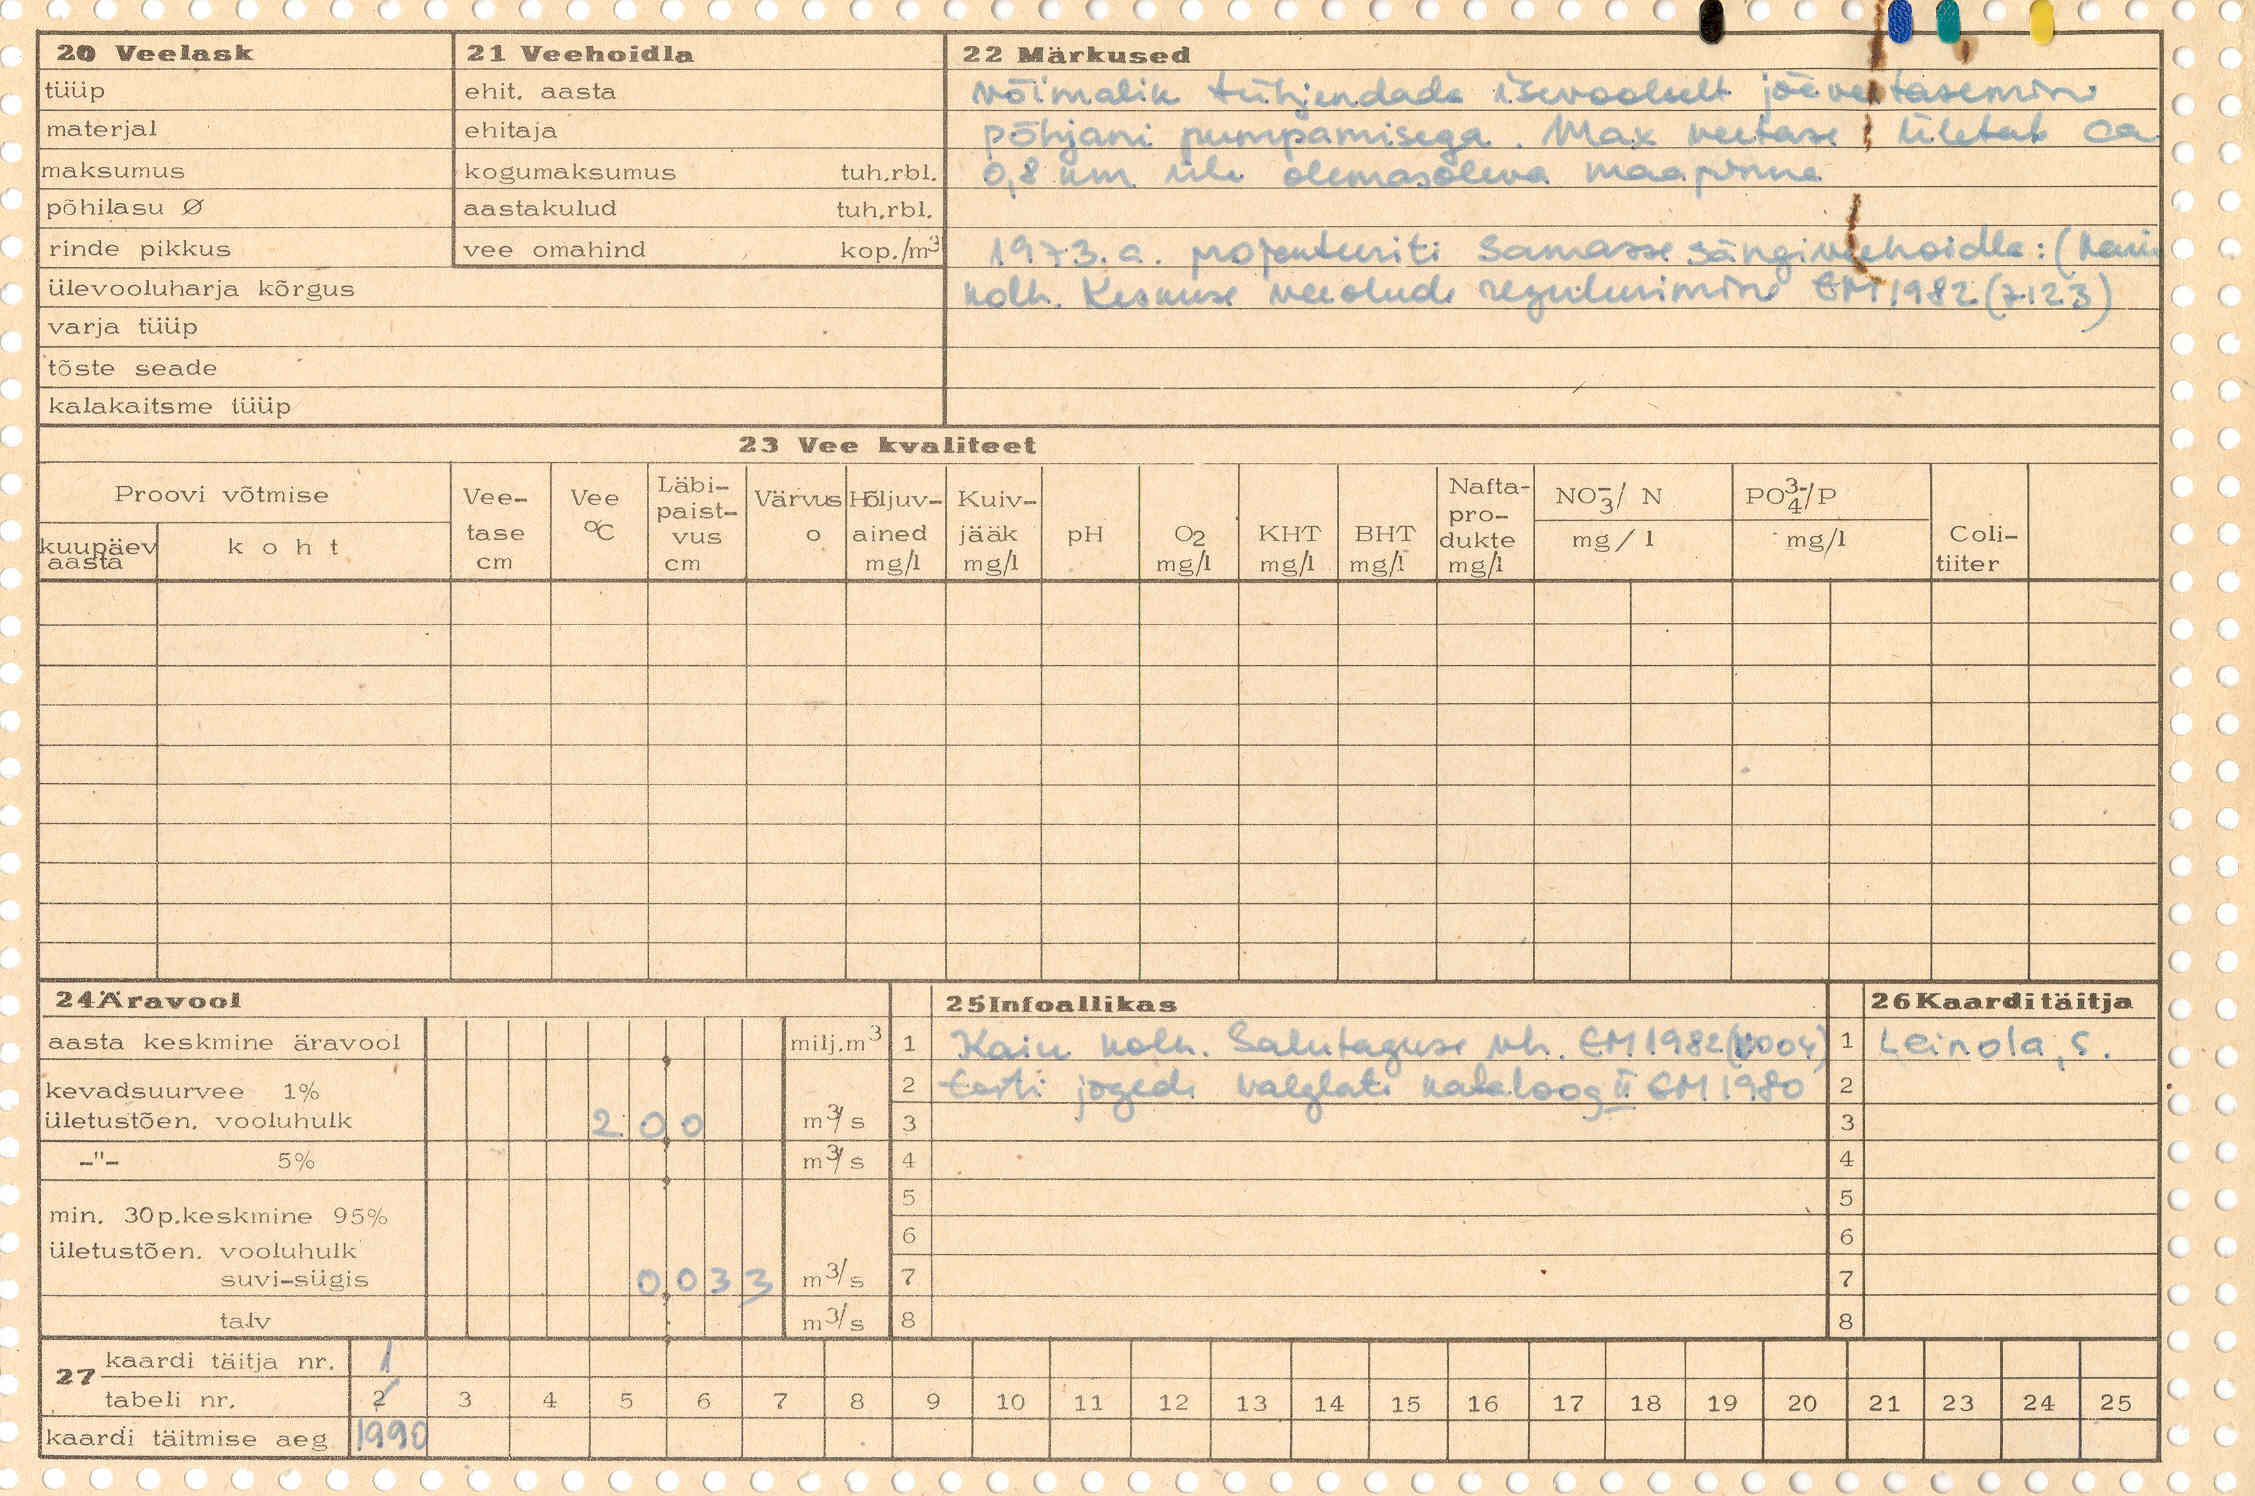 20 Veelask
tüüp
materjal
maksumus
põhilasu Ø
rinde pikkus
ülevooluharja kõrgus
varja tüüp
tõste seade
kalakaitsme tüüp
21 Veehoidla
ehit. aasta
ehitaja
kogumaksumus tuh.rbl.
aastakulud tuh.rbl.
vee omahind kop./m³
22 Märkused
võimalik tühjendada isevoolselt jõeveetasemini
põhjani pumpamisega. Max veetase ületab ca
0,8 üle olemasoleva maapinna
1973.a. projekteeriti samasse sängi veehoidla: (Kaiu
kolh. Keskuse veeolude reguleerimine EM 1982 (7123)
23 Vee kvaliteet
Proovi võtmise
kuupäev aasta
koht
Vee-tase cm
Vee °C
Läbi-paist-vus cm
Värvus o
Hõljuv-ained mg/l
Kuiv-jääk mg/l
pH
O₂ mg/l
KHT mg/l
BHT mg/l
Nafta-pro-dukte mg/l
NO₃⁻/ N mg/l
PO₄³⁻/P mg/l
Coli-tiiter
24 Äravool
aasta keskmine äravool milj.m³
kevadsuurvee 1%
ületustõen. vooluhulk 200 m³/s
-"- 5% m³/s
min. 30p.keskmine 95%
ületustõen. vooluhulk
suvi-sügis 0033 m³/s
talv m³/s
25 Infoallikas
1 Kaiu kolh. Salutaguse vh. EM 1982
2 Eesti jõgede valglate kataloog II EM 1980
3
4
5
6
7
8
26 Kaardi täitja
1 Leinola, S.
2
3
4
5
6
7
8
27 kaardi täitja nr. 1
tabeli nr. 2 3 4 5 6 7 8 9 10 11 12 13 14 15 16 17 18 19 20 21 23 24 25
kaardi täitmise aeg 1990